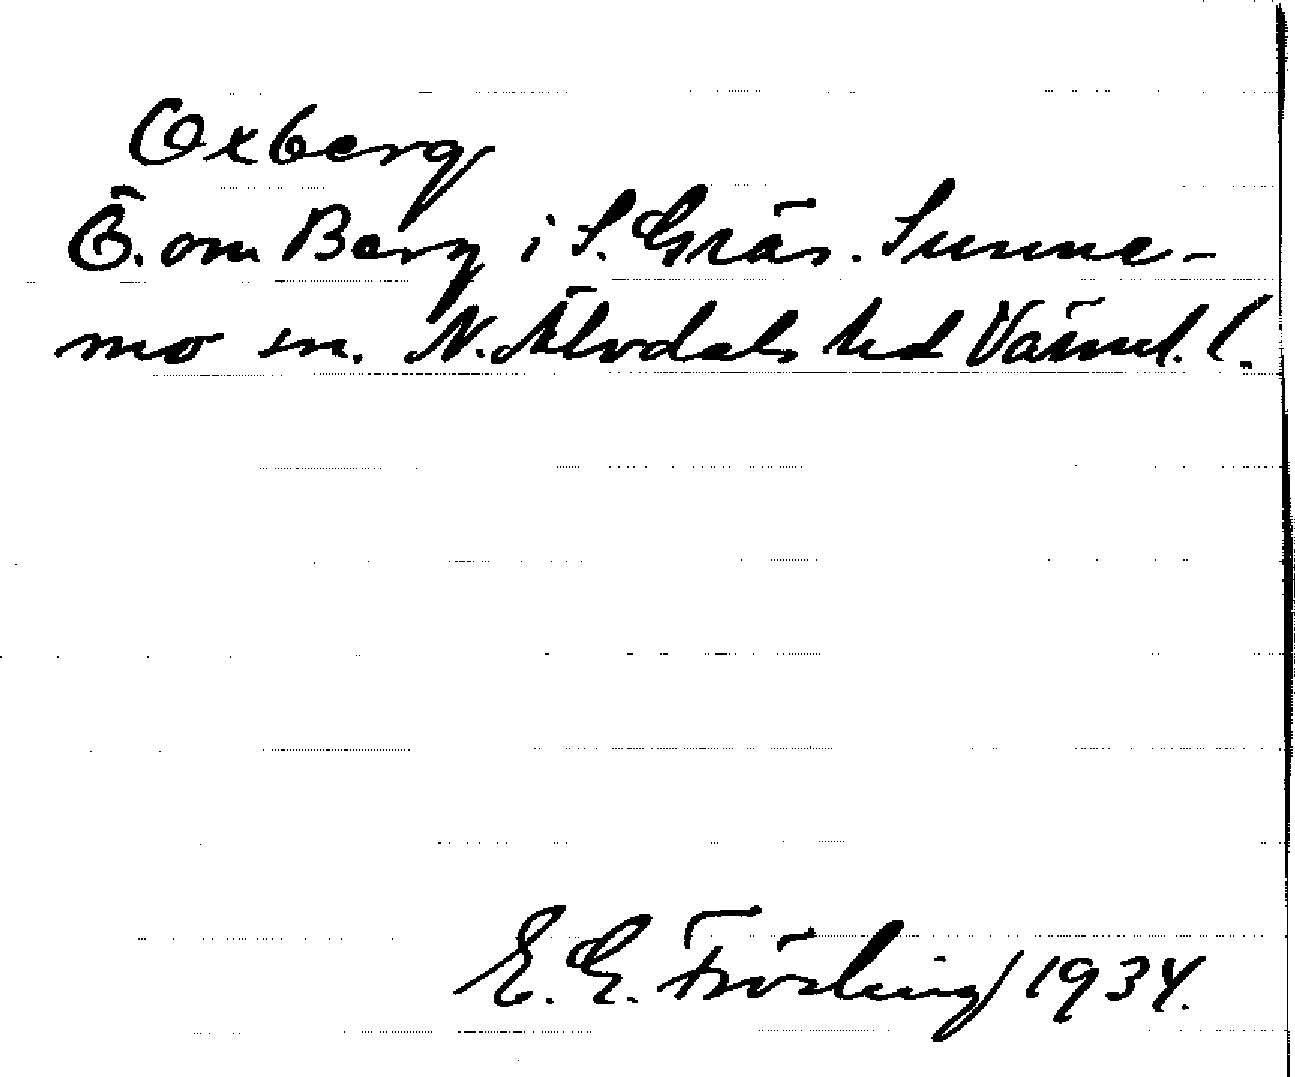 Oxberg
Ö. om Berg i S. Gräs. Sunne-
mo sn. N. Älvdals hd Värml. l.
E. G. Frösling 1934.